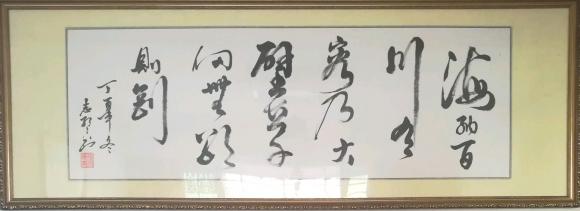 海納百
川有
容乃大
壁立千
仞無欲
則剛
丁亥年冬